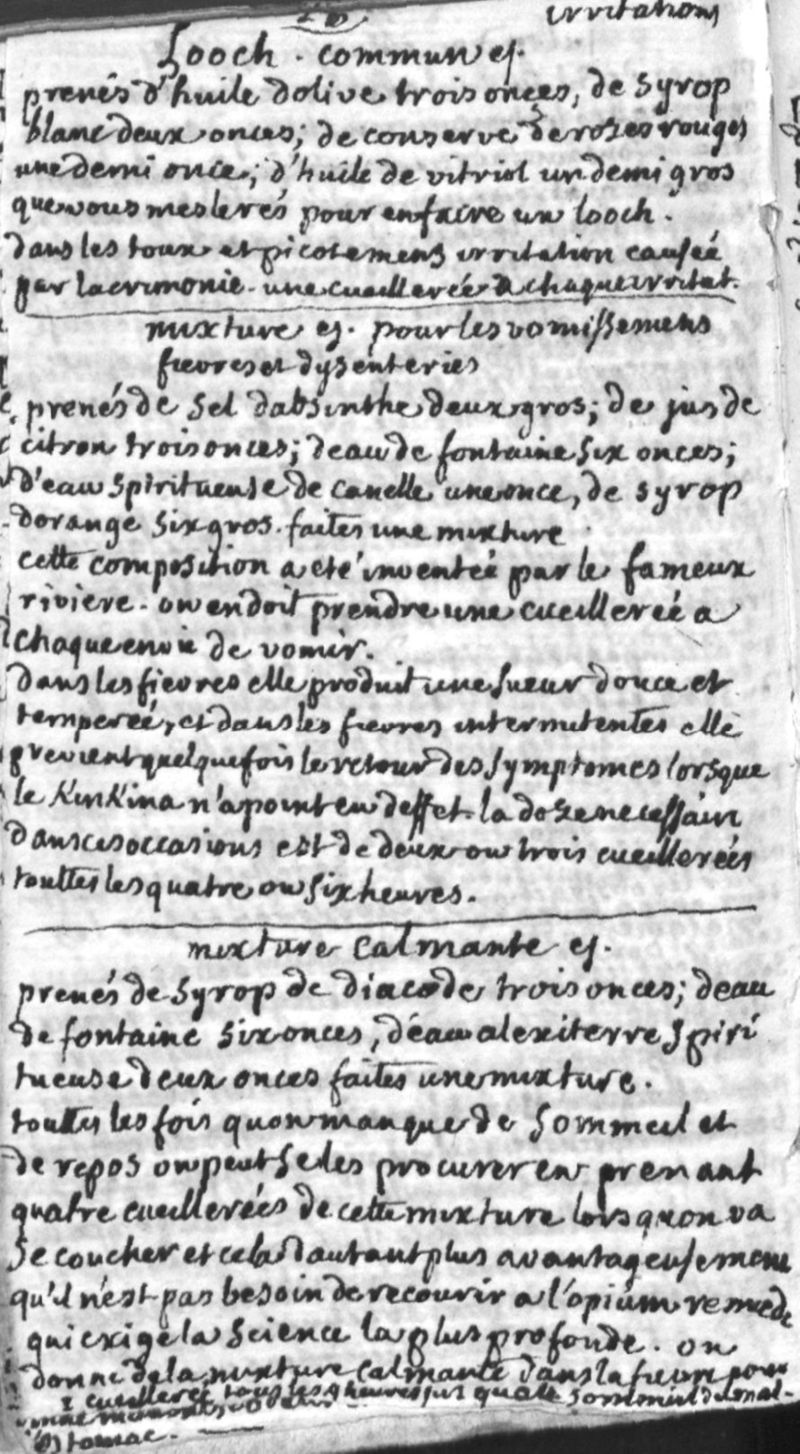 irritations
Looch. commun ej.
prenés d'huile dolive trois onces, de syrop
blanc deux onces; de conserve de roses rouges
une demi once; d'huile de vitriol un demi gros
que vous meslerés pour en faire un looch.
dans les toux et picotemens irritation causeé
par lacrimonie. une cueillereé a chaque irritat.
mixture ej. pour les vomissemens
fievres et dysenteries
prenés de sel dabsinthe deux gros; de jus de
citron trois onces; deau de fontaine six onces;
d'eau spiritueuse de canelle une once, de syrop
dorange six gros. faites une mixture
cette composition a eté inventeé par le fameux
riviere. on en doit prendre une cueillereé a
chaque envie de vomir.
dans les fievres elle produit une sueur douce et
tempereé, et dans les fievres intermitentes elle
previent quelquefois le retour des symptomes lorsque
le KinKina n'a point eu deffet. la doze necessaire
dans ces occasions est de deux ou trois cueillereés
touttes les quatre ou six heures.
mixture calmante ej.
prenés de syrop de diacode trois onces; deau
de fontaine six onces, d'eau alexiterre spiri
tueuse deux onces faites une mixture.
touttes les fois quon manque de sommeil et
de repos on peut se les procurer en prenant
quatre cueillereés de cette mixture lorsquon va
se coucher et cela dautant plus avantageusement
qu'il n'est pas besoin de recourir a l'opium remede
qui exige la science la plus profonde. on
donne de la mixture calmante dans la fievre pour
1 cueillereé tous les 4 heures
estomac.